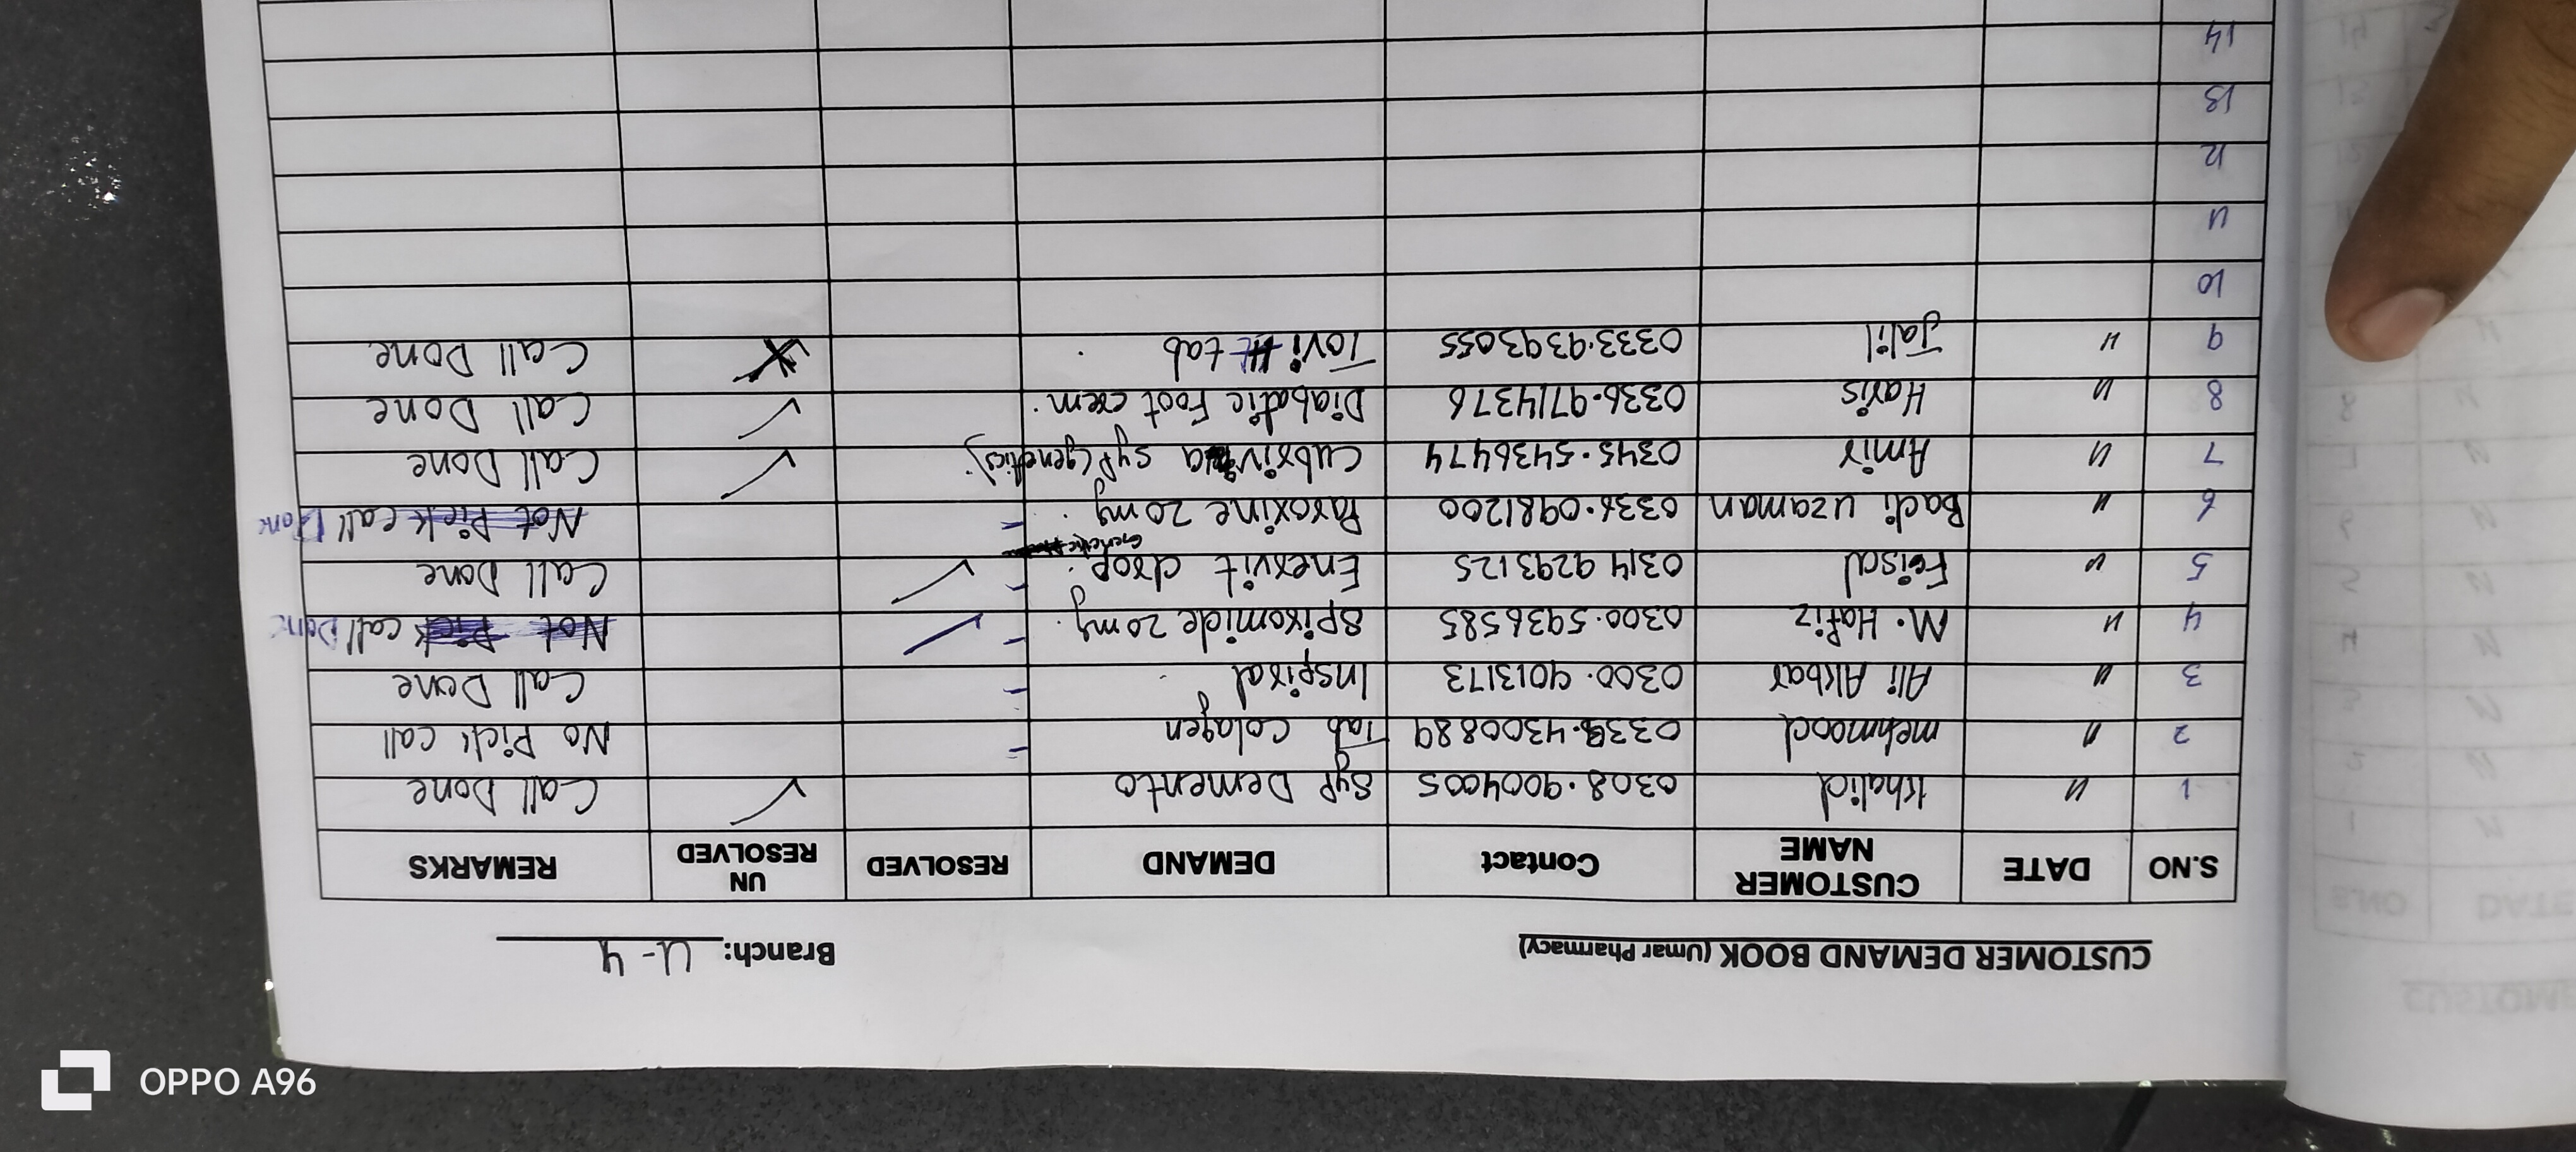 CUSTOMER DEMAND BOOK (Umar Pharmacy) Branch: U-4
S.NO DATE CUSTOMER NAME Contact DEMAND RESOLVED UN RESOLVED REMARKS
1 " Khalid 0308.9004005 Syp Demento ✓ Call Done
2 " mehmood Tab Colagen No Pick call
3 " Ali Akbar 0300.9013173 Inspiral Call Done
4 " M. Hafiz 0300.5936585 Spiromide 20mg. ✓ call Done
5 " Feisal 0314 9293125 Enervit drop. ✓ Call Done
6 " Badi uzaman 0336.0981200 Paroxine 20mg. call Done
7 " Amir 0345.5436474 syp (genetics) ✓ Call Done
8 " Haris 0336.9714376 Diabatic Foot crem. ✓ Call Done
9 " Jalil 0333.9393055 Tovi tab Call Done
10
11
12
13
14
OPPO A96